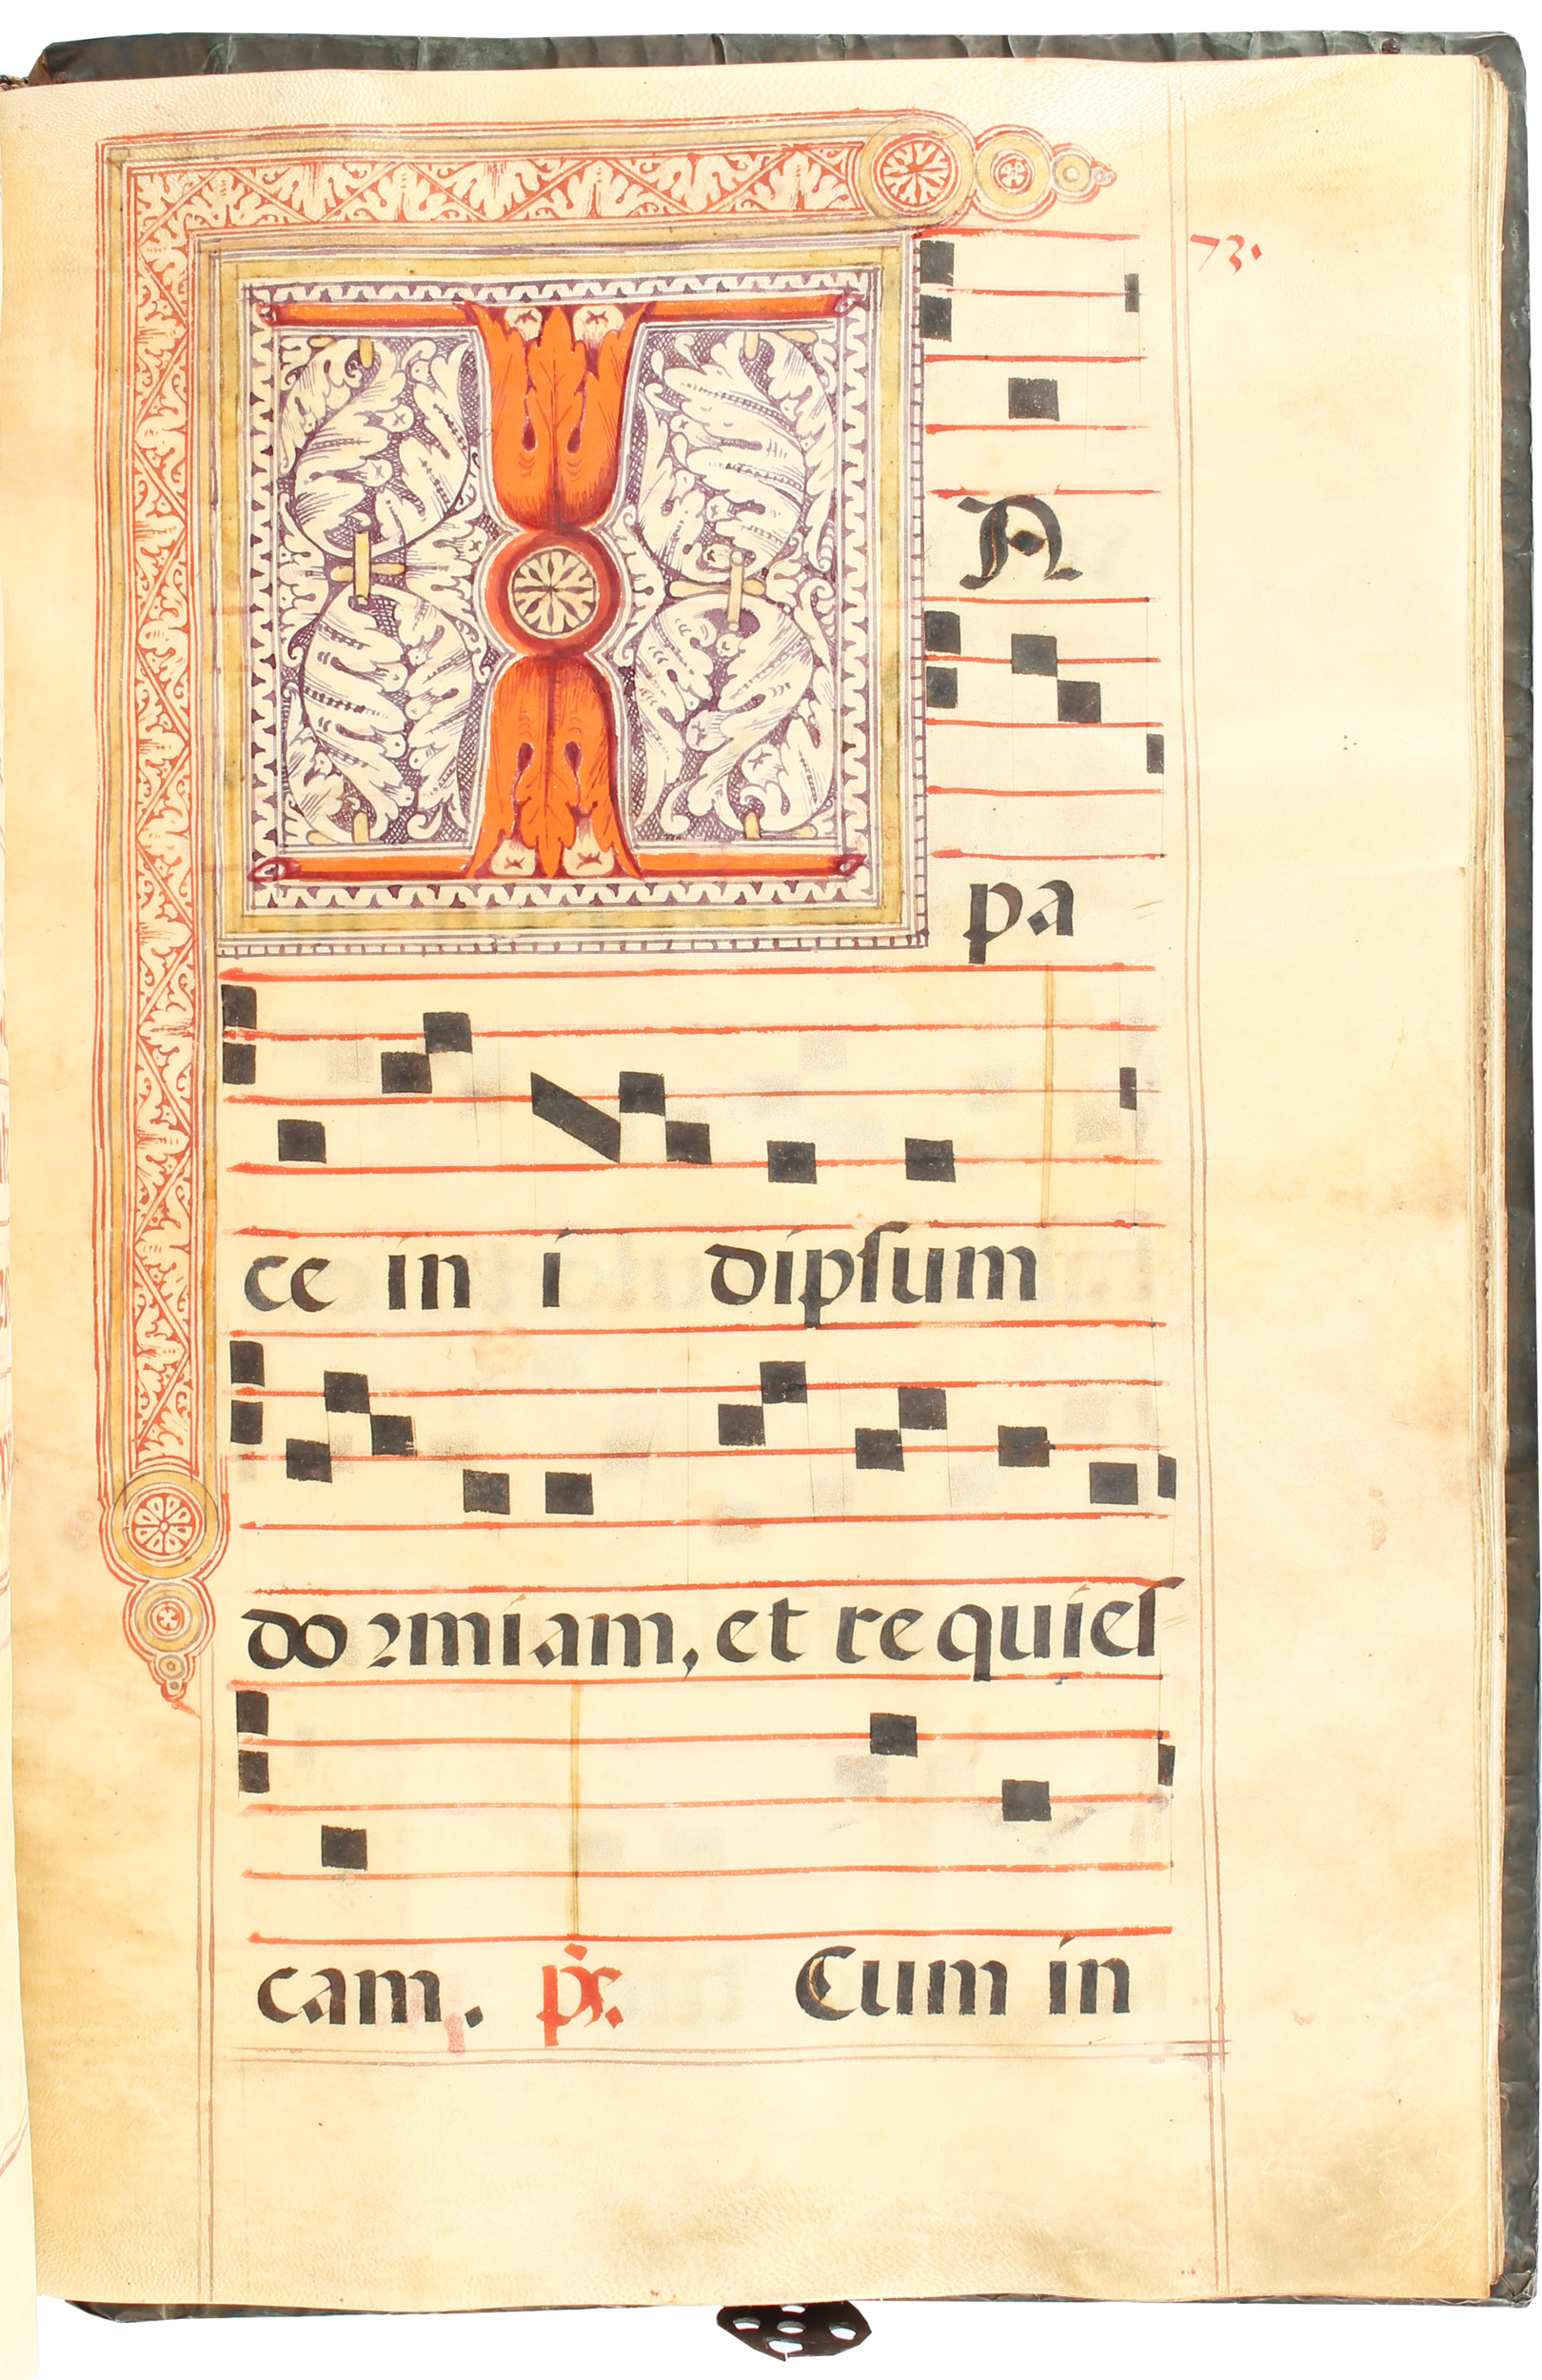 73.
I N
pa
ce in i dipſum
do ꝛmiam, et re quieſ
cam. p̃s. Cum in